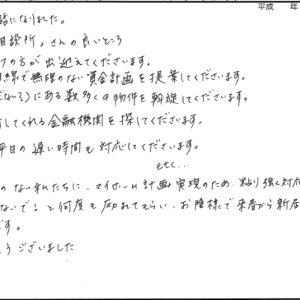 平成　年
話になりました。
相談所，さんの良いところ
けの方が出迎えてくださいます。
線で無理のない資金計画を提案してくださいます。
にある数多くの物件を斡旋してくださいます。
してくれる金融機関を探してくださいます。
平日の遅い時間も対応してくださいます。
etc...
のない私たちに、マイホーム計画実現のため、粘り強く対応
ないで！と何度も励れてもらい、お陰様で来春から新居
です。
うございました